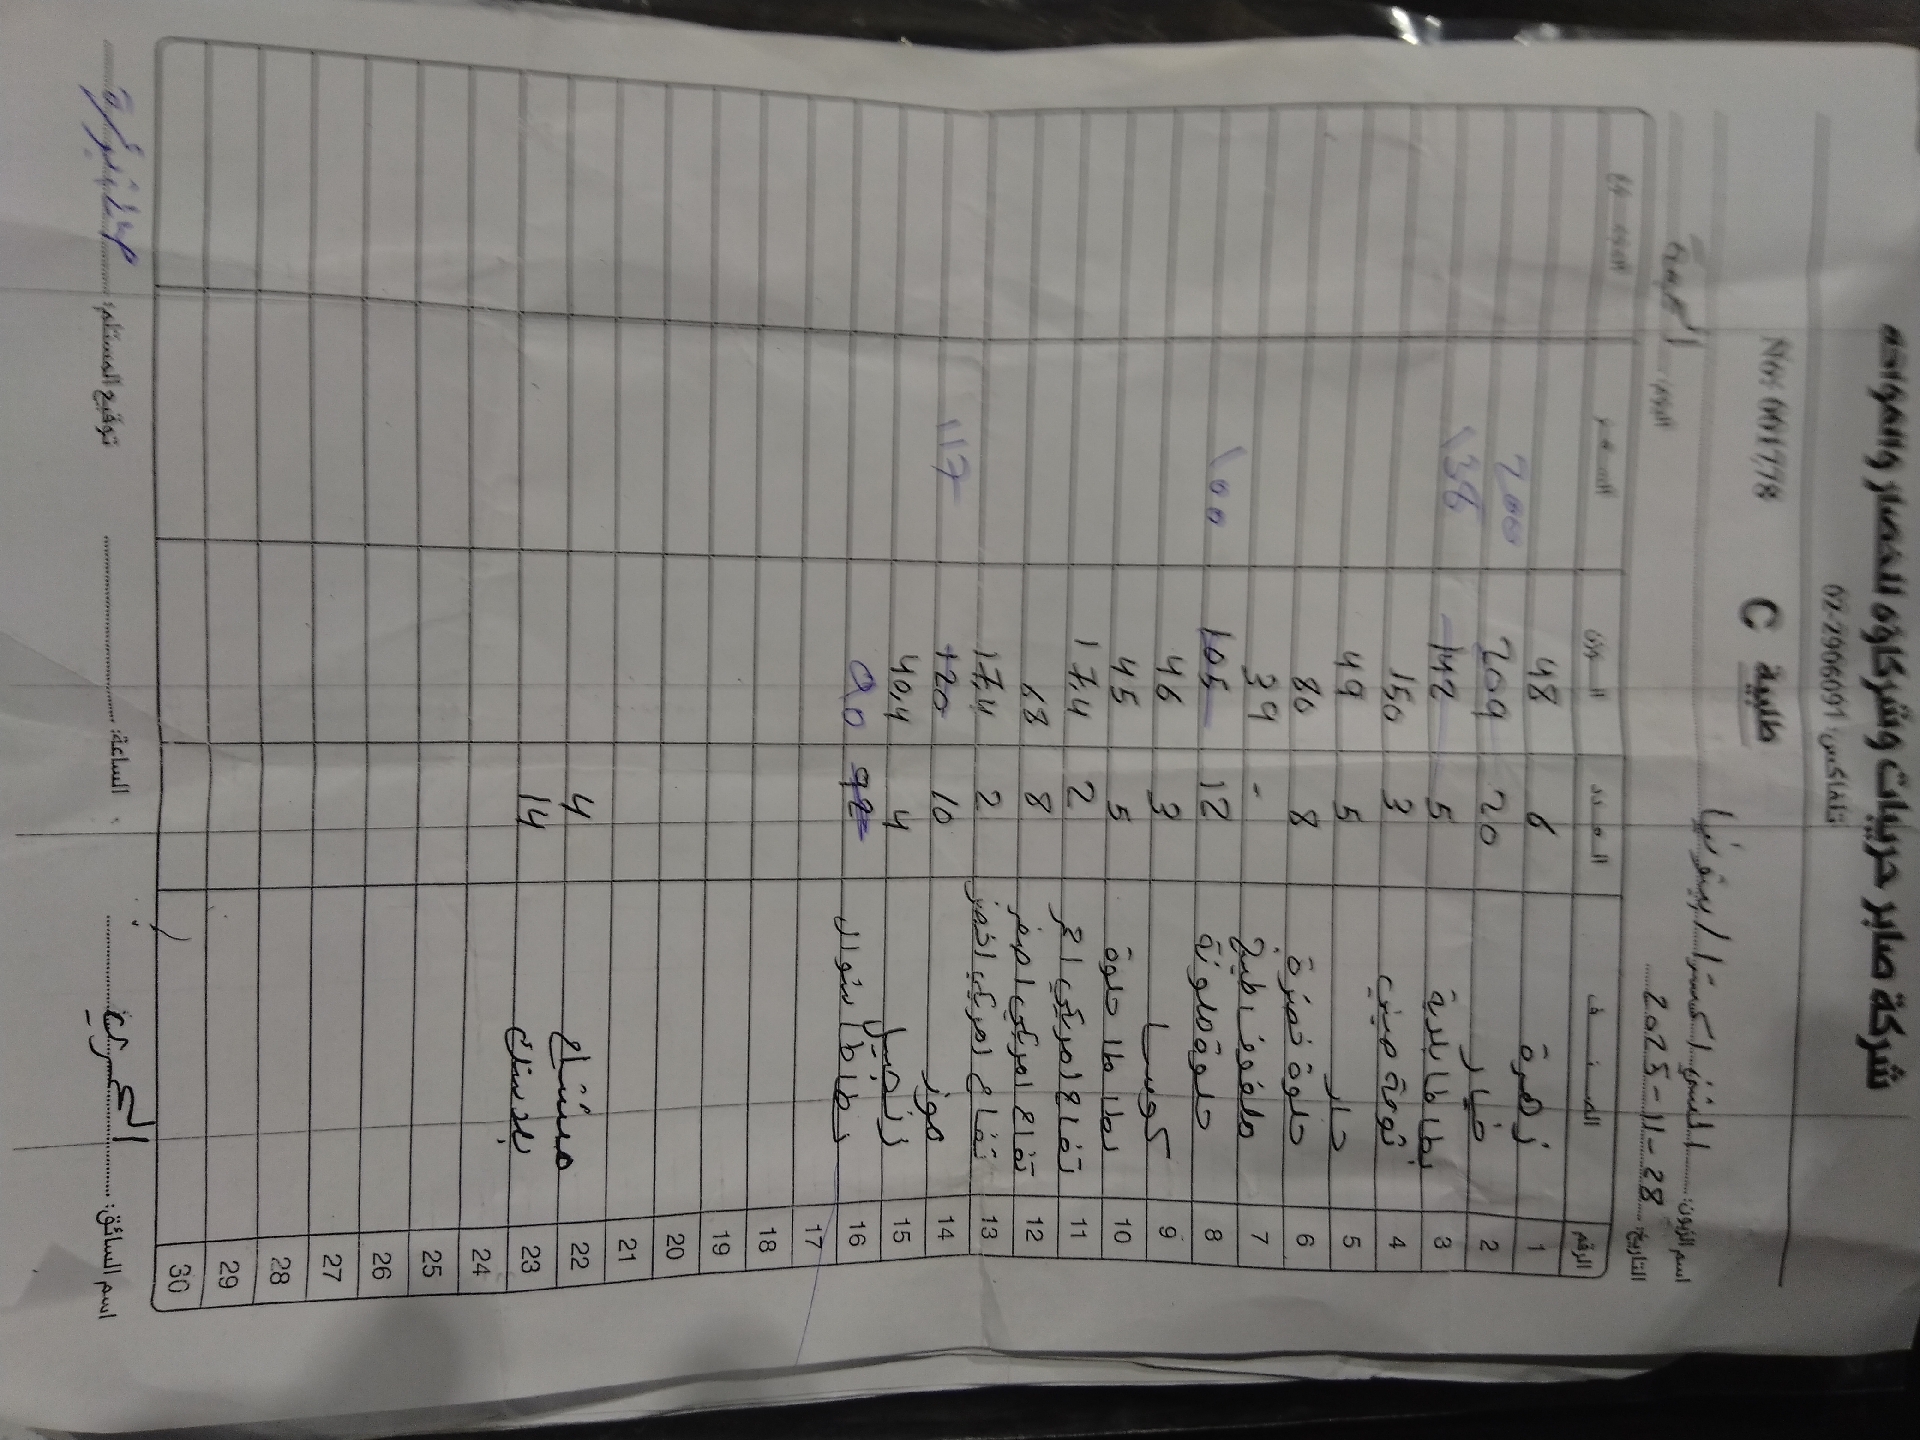 شركة صابر حربيات وشركاؤه للخضار والفواكه
تلفاكس: 02-2966091
No: 001778 طلبية C
اسم الزبون: اكسترا
التاريخ: 28-11-2025 اليوم: الجمعة
الرقم الصنف العدد الوزن السعر
1 زهرة 6 48
2 خيار 20 209 200
3 بطاطا بلدية 5 142 136
4 ثومة صيني 3 150
5 5 49
6 حلوة خضرة 8 80
7 ملفوف ابيض - 39
8 حلوة ملونة 12 105 100
9 كوسا 3 46
10 بطاطا حلوة 5 45
11 تفاح امريكي احمر 2 17,4
12 تفاح امريكي اصفر 8 68
13 تفاح امريكي اخضر 2 17,4
14 موز 10 120 117
15 زنجبيل 4 40,4
16 بطاطا شوال
17
18
19
20
21
22 مشتاح 4
23 بلاستك 14
24
25
26
27
28
29
30
اسم السائق: الساعة: توقيع المستلم: